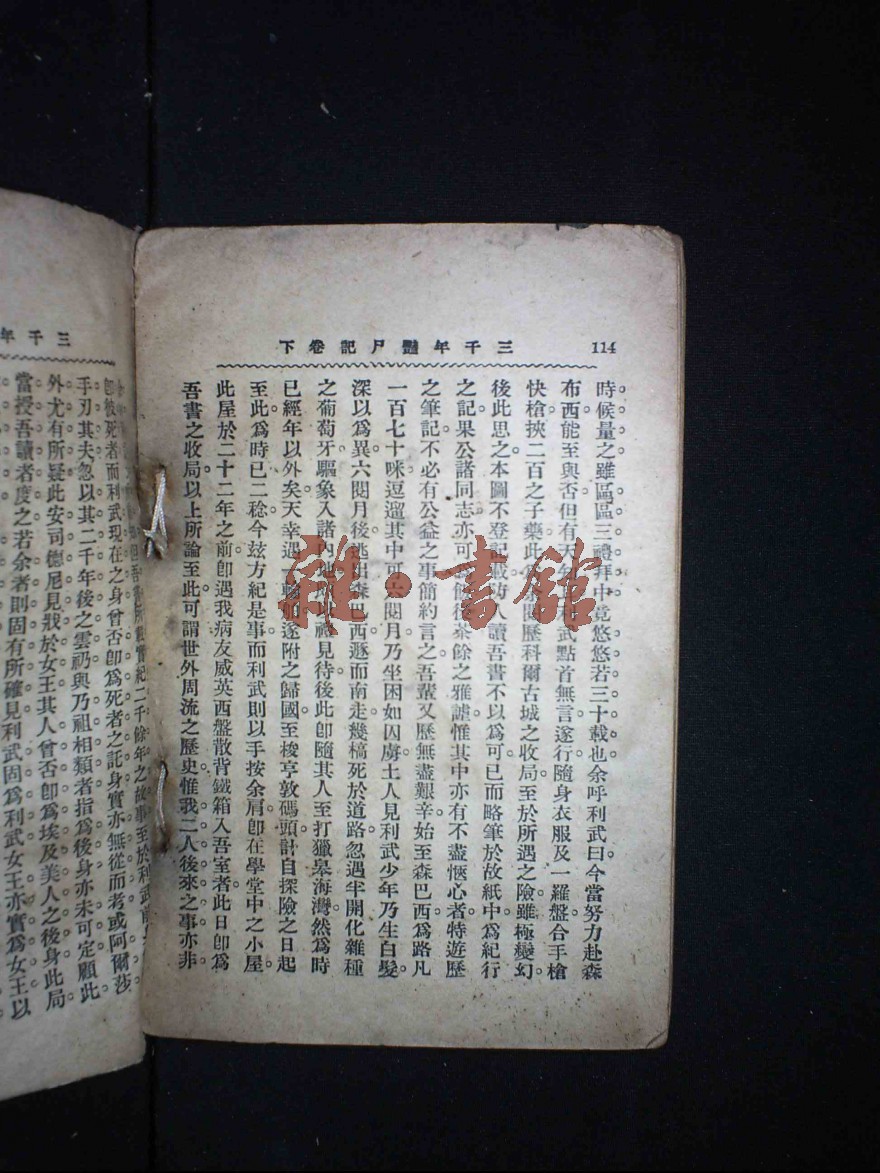 114
三千年豔尸記卷下
時候量之雖區區三禮拜中竟悠悠若三十載也余呼利武曰今當努力赴森
布西能至與否但有天 武點首無言遂行隨身衣服及一羅盤合手槍
快槍挾二百之子藥此 閱歷科爾古城之收局至於所遇之險雖極變幻
後此思之本圖不登記載 人讀吾書不以爲可已而略筆於故紙中爲紀行
之記果公諸同志亦可 餘 茶餘之雅謔惟其中亦有不盡愜心者特遊歷
之筆記不必有公益之事簡約言之吾輩又歷無盡艱辛始至森巴西爲路凡
一百七十咪逗遛其中可六閱月乃坐困如囚虜土人見利武少年乃生白髮
深以爲異六閱月後逃出森巴西遯而南走幾槁死於道路忽遇半開化雜種
之葡萄牙驅象入諸內地 禮見待後此卽隨其人至打獵皋海灣然爲時
已經年以外矣天幸遇一輪船遂附之歸國至梭亨敦碼頭計自探險之日起
至此爲時已二稔今玆方紀是事而利武則以手按余肩卽在學堂中之小屋
此屋於二十二年之前卽遇我病友威英西盤散背鐵箱入吾室者此日卽爲
吾書之收局以上所論至此可謂世外周流之歷史惟我二人後來之事亦非
三千年
吾 所載實紀二千餘年之故事至於利武前
卽被死者而利武現在之身曾否卽爲死者之託身實亦無從而考或阿爾莎
手刃其夫忽以其二千年後之雲礽與乃祖相類者指爲後身亦未可定顧此
外尤有所疑此安司德尼見戕於女王其人曾否卽爲埃及美人之後身此局
當授吾讀者度之若余者則固有所確見利武固爲利武女王亦實爲女王以
雜·書館